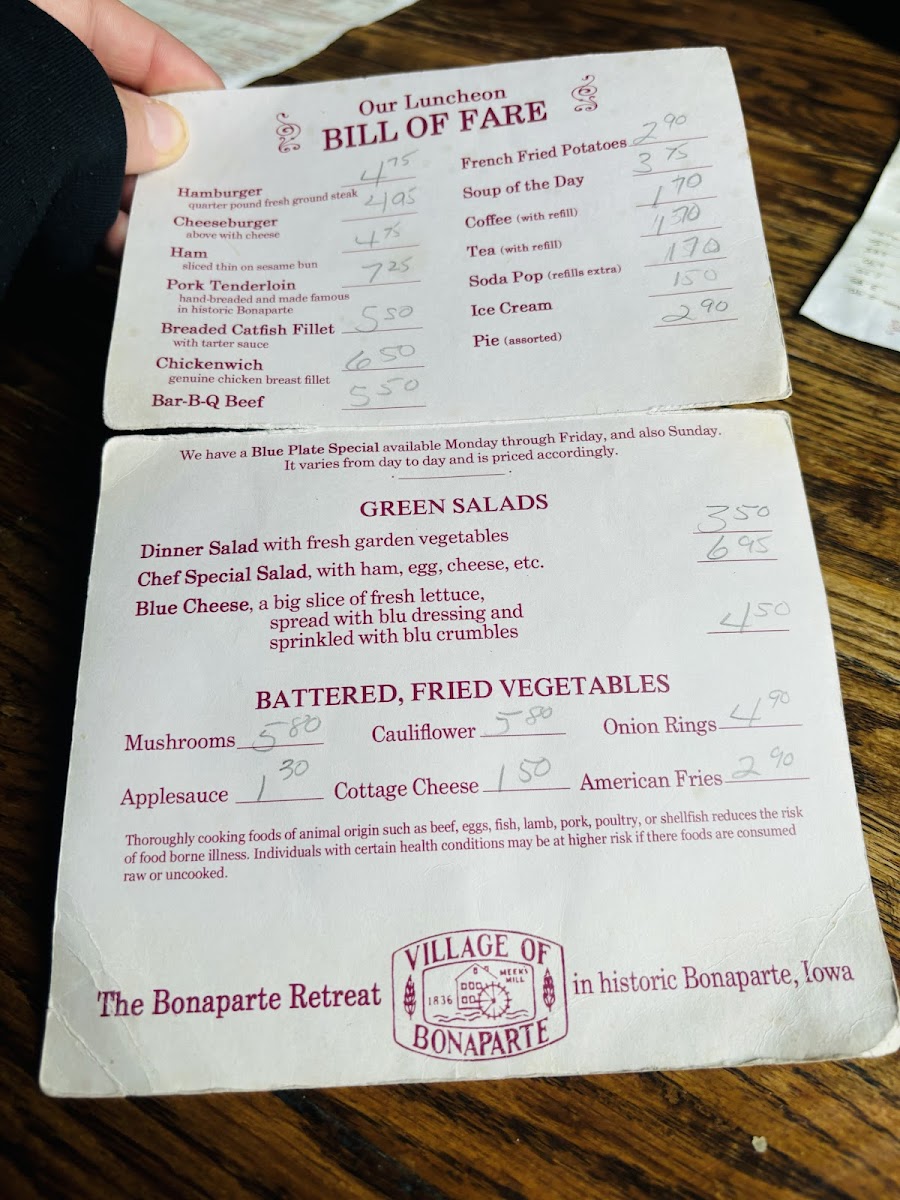 Our Luncheon
BILL OF FARE
Hamburger 4 75
quarter pound fresh ground steak
Cheeseburger 4 95
above with cheese
Ham 4 75
sliced thin on sesame bun
Pork Tenderloin 7 25
hand-breaded and made famous
in historic Bonaparte
Breaded Catfish Fillet 5 50
with tarter sauce
Chickenwich 6 50
genuine chicken breast fillet
Bar-B-Q Beef 5 50
French Fried Potatoes 2 90
Soup of the Day 3 75
Coffee (with refill) 1 70
Tea (with refill) 1 70
Soda Pop (refills extra) 1 70
Ice Cream 1 50
Pie (assorted) 2 90
We have a Blue Plate Special available Monday through Friday, and also Sunday.
It varies from day to day and is priced accordingly.
GREEN SALADS
Dinner Salad with fresh garden vegetables 3 50
Chef Special Salad, with ham, egg, cheese, etc. 6 95
Blue Cheese, a big slice of fresh lettuce,
spread with blu dressing and
sprinkled with blu crumbles 4 50
BATTERED, FRIED VEGETABLES
Mushrooms 5 80 Cauliflower 5 80 Onion Rings 4 90
Applesauce 1 30 Cottage Cheese 1 50 American Fries 2 90
Thoroughly cooking foods of animal origin such as beef, eggs, fish, lamb, pork, poultry, or shellfish reduces the risk
of food borne illness. Individuals with certain health conditions may be at higher risk if there foods are consumed
raw or uncooked.
The Bonaparte Retreat
VILLAGE OF
MEEKS
MILL
1836
BONAPARTE
in historic Bonaparte, Iowa